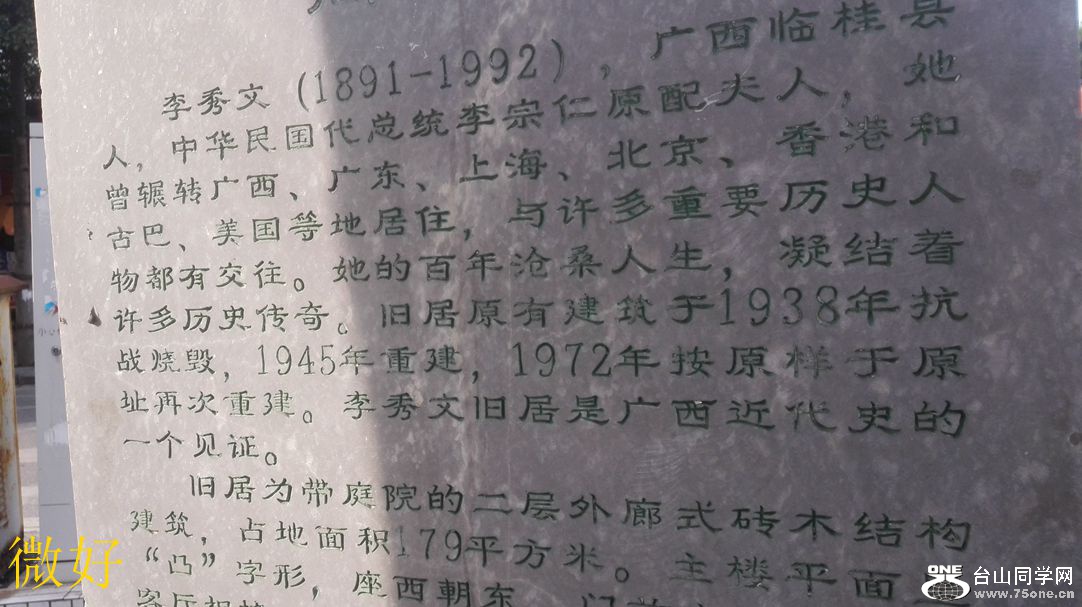 李秀文(1891-1992)，广西临桂县
人，中华民国代总统李宗仁原配夫人，她
曾辗转广西、广东、上海、北京、香港和
古巴、美国等地居住，与许多重要历史人
物都有交往。她的百年沧桑人生，凝结着
许多历史传奇。旧居原有建筑于1938年抗
战烧毁，1945年重建，1972年按原样于原
址再次重建。李秀文旧居是广西近代史的
一个见证。
旧居为带庭院的二层外廊式砖木结构
建筑，占地面积179平方米。主楼平面
“凸”字形，座西朝东
微好
ONE
台山同学网
www.75one.cn